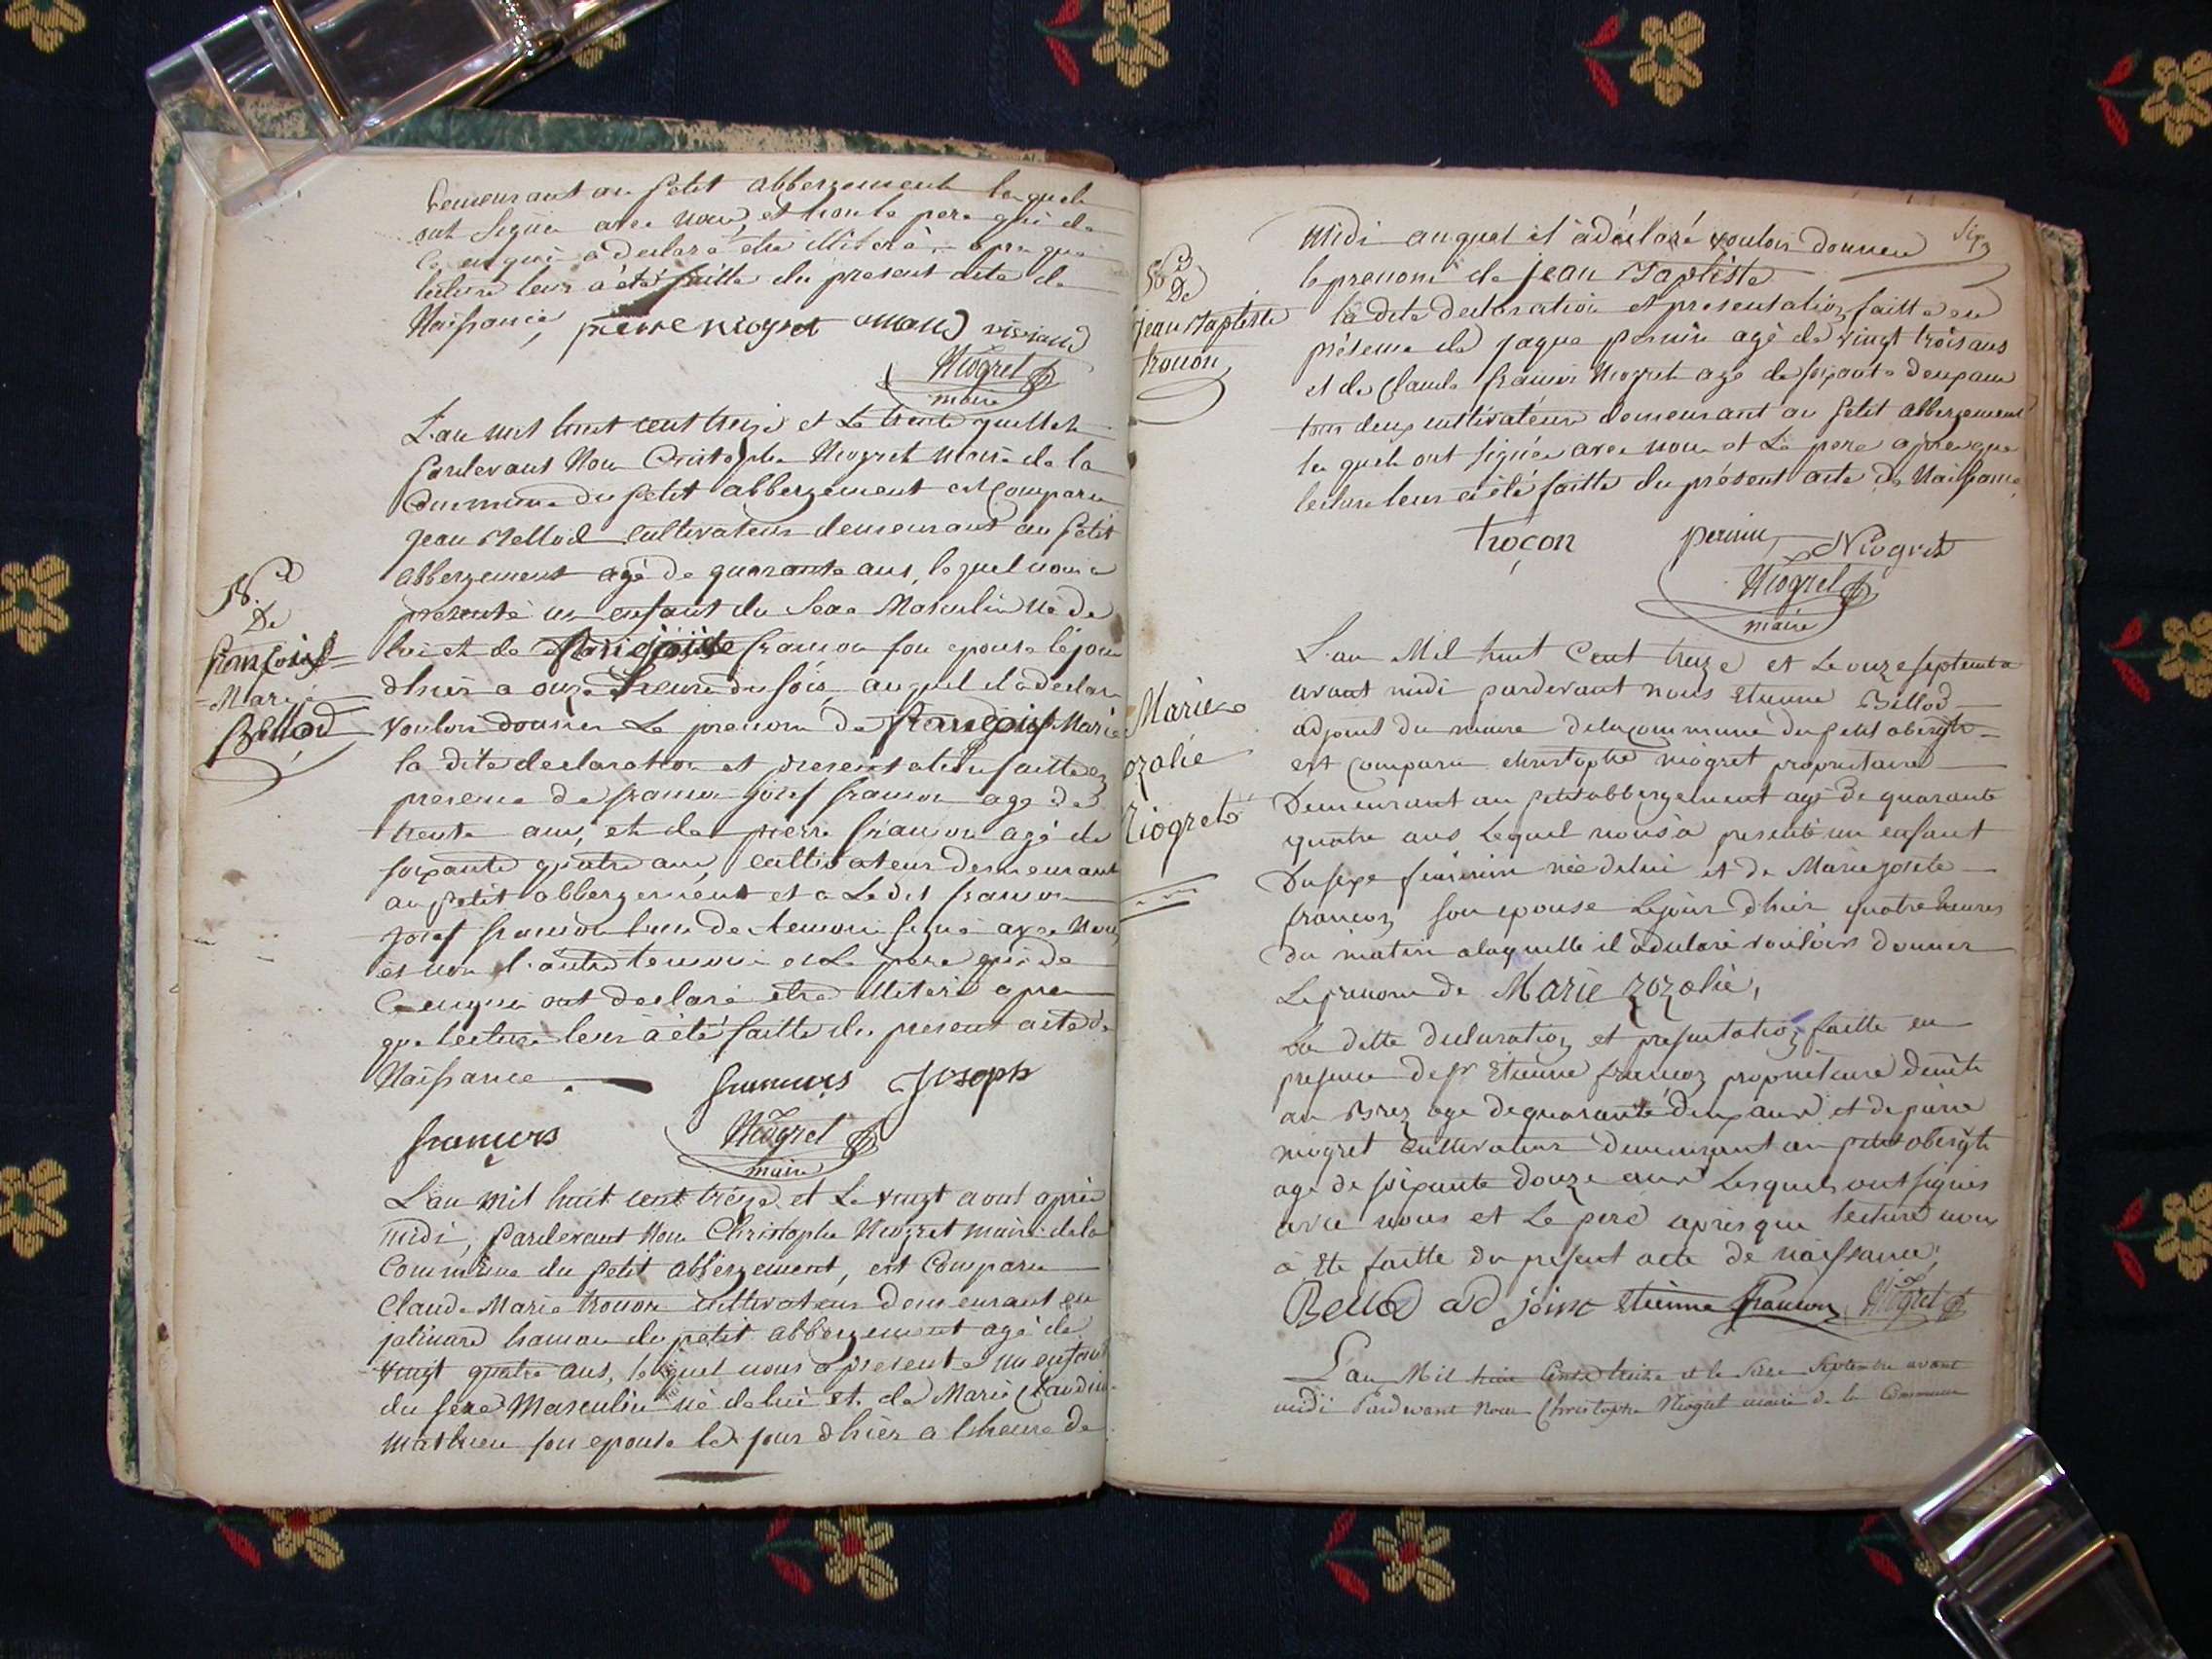 demeurant au petit abbergement lesquels
ont signés avec nous, et non le pere qui de
ce enqui a déclaré etre illiteré, apres que
lecture leur à été faitte du present acte de
Naissance, pierre niogret viviand
Niogret
maire
L'an mil huit cent treize et Le trente juillet
pardevant Nous Cristophe Niogret Maire de la
Commune du petit abbergement est Comparu
jean Bellod Cultivateur demeurant au petit
abbergement agé de quarante ans, lequel nous a
presenté un enfant du Sexe Masculin né de
lui et de françon son epouse le jour
dhièr a onze heure du soir auquel il a declaré
vouloir donner Le prenom de françois Marie
la dite declaration et presentation faitte en
presence de françon josef françon agé de
trente ans, et de pierre françon agé de
soixante quatre ans, cultivateurs demeurant
au petit abbergement et a Ledit françon
josef françon l'un des temoins signé avec Nous
et non l'autre temoin et Le pere qui de
Ce enqui ont declaré etre illiteré apres
que lecture leur à été faitte du present acte de
Naissance.
Joseph
Niogret
maire
N.ce
De
françois
Marie
Bellod
L'an mil huit cent treize et Le vingt aout après
midi, pardevant Nous Christophe Niogret maire de la
Commune du petit abbergement, est Comparu
Claude Marie trocon cultivateur demeurant en
jalinard hamau du petit abbergement agé de
vingt quatre ans, lequel nous a presenté un enfant
du sexe Masculin né de lui et de Marie Claudine
Mathieu son epouse le jour dhièr a lheure de
Six
midi auquel il à déclaré vouloir donner
le prenom de jean Baptiste
la dite declaration et presentation faitte en
présence de jaque perrin agé de vingt trois ans
et de Claude françois Niogret agé de soixante deux ans
tous deux cultivateurs demeurant au petit abbergement
lesquels ont signés avec nous et Le pere apres que
lecture leur à été faitte du présent acte de Naissance
troçon perrin Niogret
Niogret
maire
N.ce
De
jean Baptiste
trocon
L'an Mil huit Cent treize et Le onze septembre
avant midi pardevant nous Etienne Bellod
adjoint du maire de la commune du petit abergt
est comparu christophe niogret propriétaire
Demeurant au petit abbergement agé de quarante
quatre ans Lequel nous a presenté un enfant
Du sexe feminin née de lui et de Marie josete
françon son epouse Le jour dhier quatre heures
du matin a laquelle il a declaré vouloir donner
Le prenom de Marie zozalie,
La ditte declaration et presentation faitte en
presence de sr Etienne françon propriétaire demt
au Brez agé de quarante deux ans et de pierre
niogret Cultivateur demeurant au petit abergt
agé de soixante douze ans Lesquels ont signés
avec nous et Le pere apres que lecture nous
a été faitte du present acte de naissance,
Bellod ad joint etienne françon Niogret
Marie
ozalie
Niogret
L'an Mil huit Cent treize et le Seize Septembre avant
midi Pardevant Nous Christophe Niogret maire de la Commune